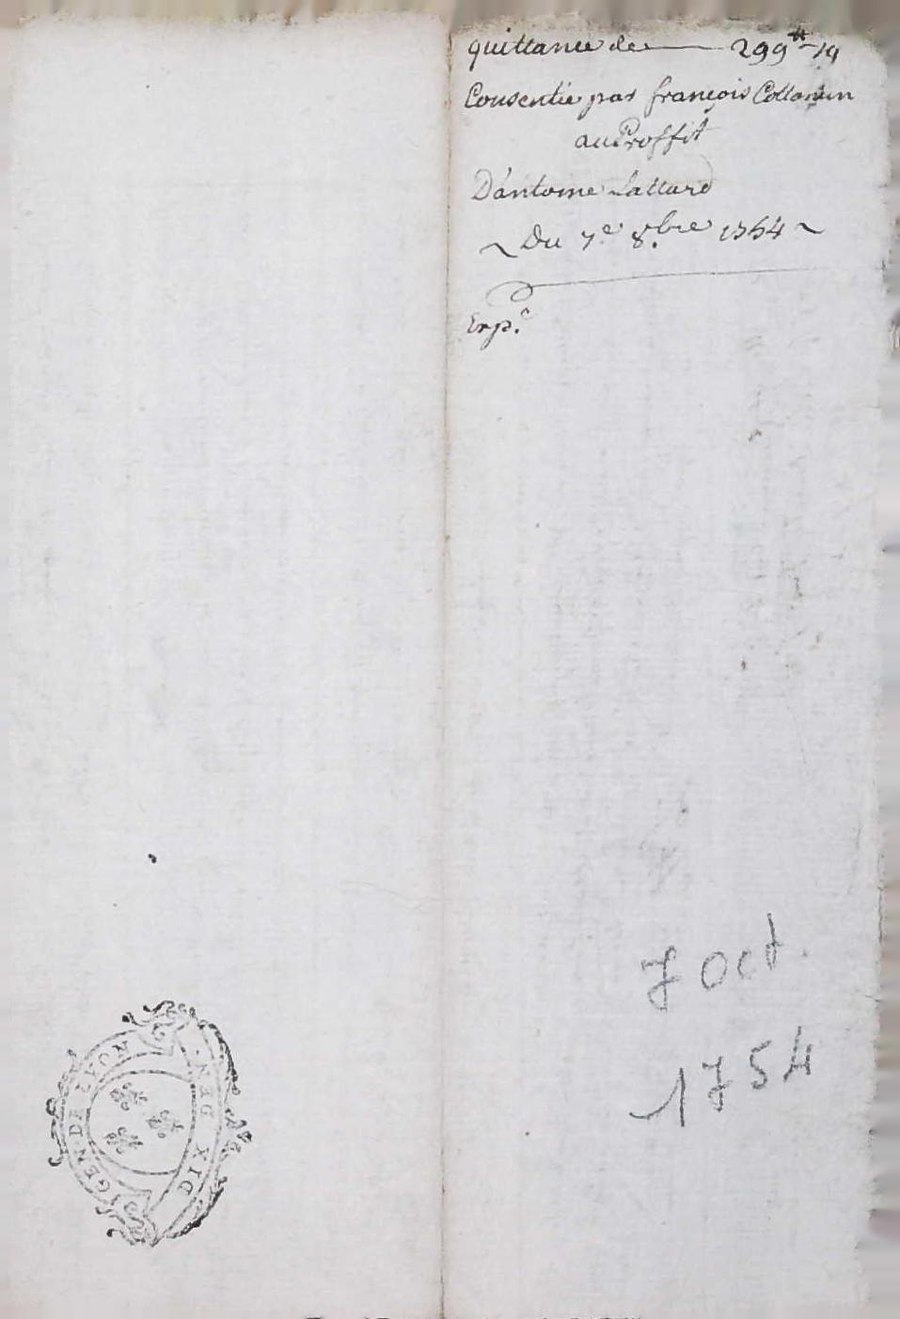 quittance de 299# 19
Consentie par françois Collomin
au Proffit
D'antoine Lattard
Du 7e 8.bre 1754
Exp.e
7 Oct.
1754
GEN·DE LYON
DIX DEN.